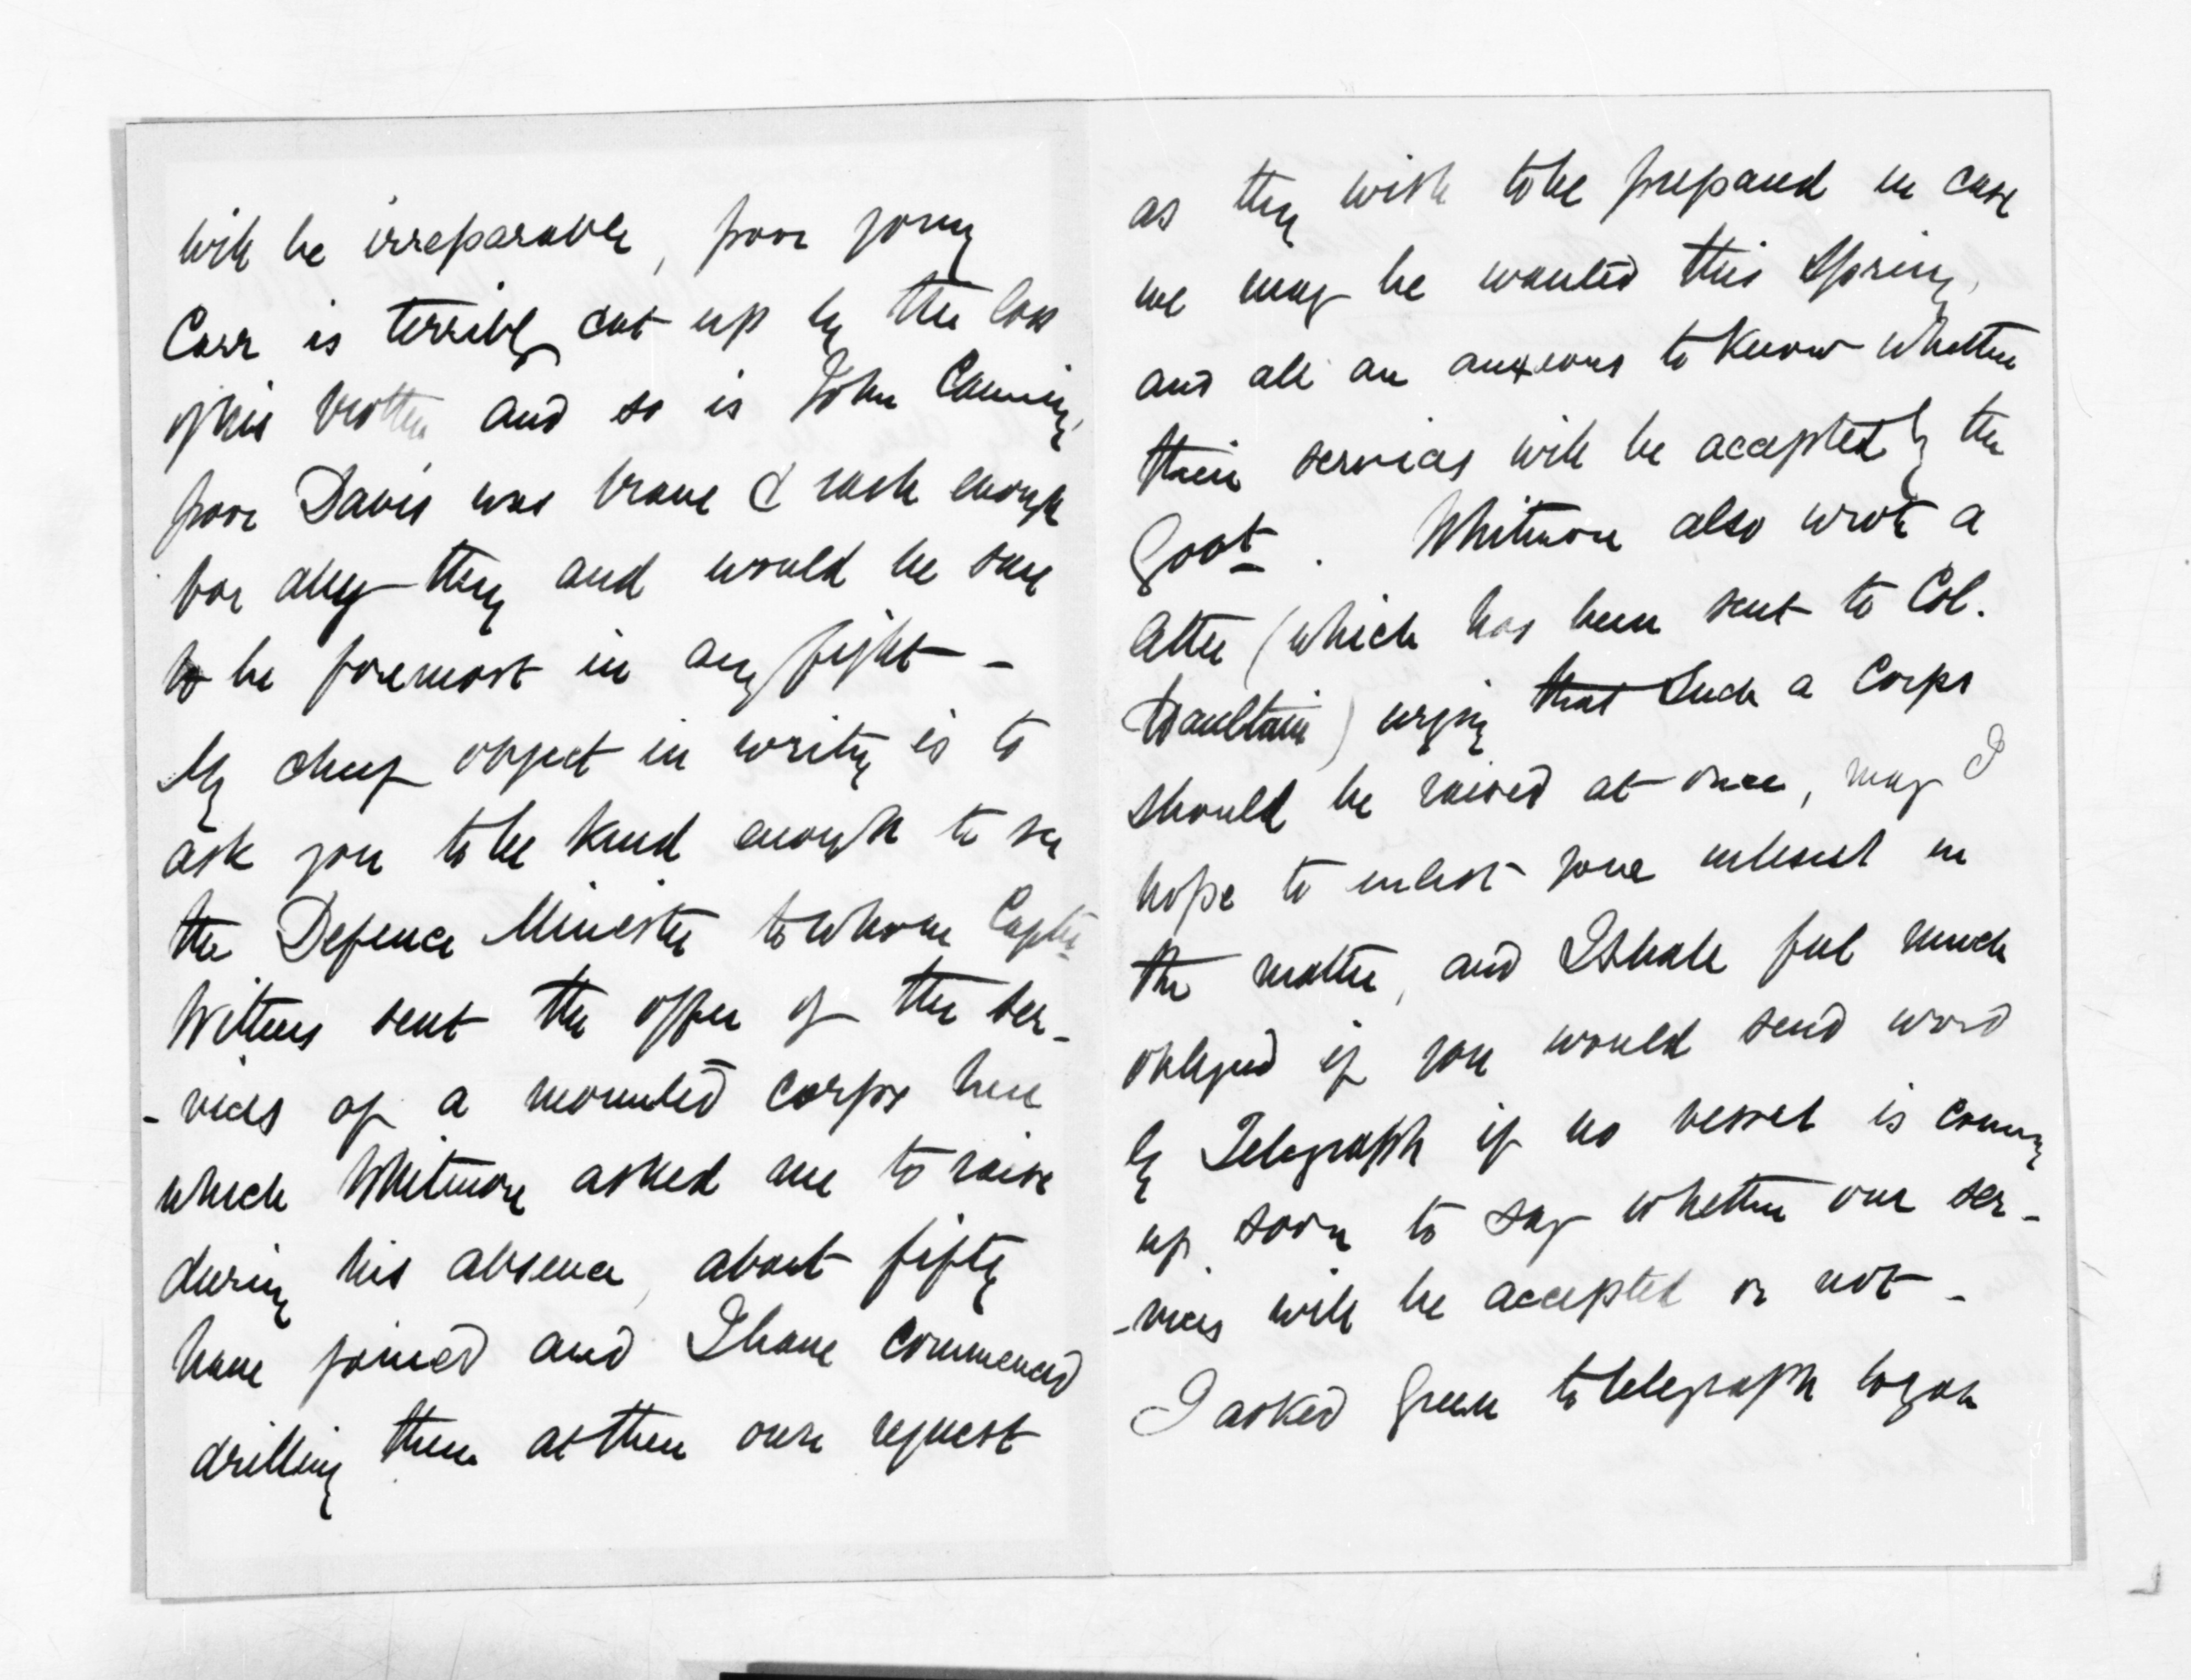 will be irreparable, poor young
Carr is terribly cut up by the loss
of his brother and so is John Canning,
poor Davis was brave & rash enough
for any-thing and would be sure
to be foremost in any fight -
My chief object in writing is to
ask you to be kind enough to see
the Defence Minister to whom Captn
Withers sent the offer of the ser-
-vices of a mounted corps here
which Whitmore asked me to raise
during his absence, about fifty
have joined and I have commenced
drilling them at their own request
as they wish to be prepared in case
we may be wanted this Spring,
and all are anxious to know whether
their services will be accepted by the
Govt. Whitmore also wrote a
letter (which has been sent to Col.
Haultain) urging that such a Corps
should be raised at once, may I
hope to enlist your interest in
the matter, and I shall feel much
obliged if you would send word
by Telegraph if no vessel is coming
up soon to say whether our ser-
-vices will be accepted or not -
I asked Green to telegraph to you